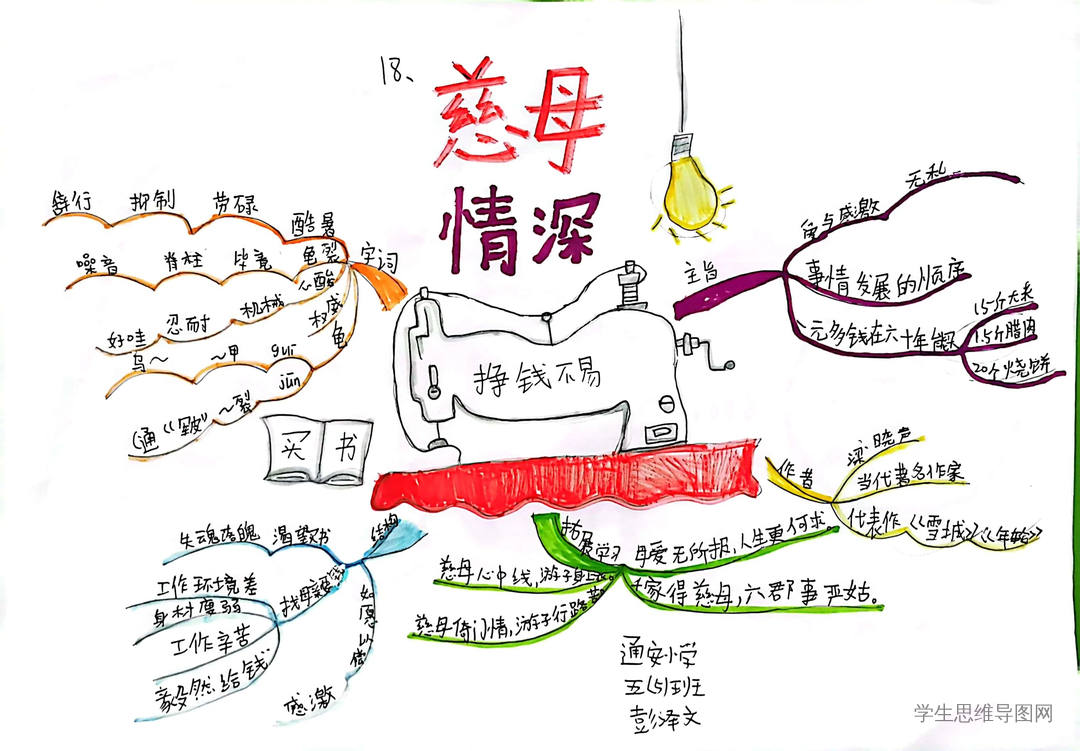 18、
慈母
情深
挣钱不易
买书
字词
酷暑
劳碌
抑制
龟裂
毕竟
脊柱
噪音
机械
忍耐
权威
龟
guī
～甲
乌～
jūn
～裂
(通“皲”
主旨
无私
事情发展的顺序
一元多钱在六十年能买
1.5斤大米
1.5斤腊肉
20个烧饼
作者
梁晓声
当代著名作家
代表作《雪城》《年轮》
结构
渴望书
失魂落魄
工作环境差
身材瘦弱
工作辛苦
毅然给钱
如愿以偿
感激
拓展学习
母爱无所报，人生更何求。
慈母心中线，游子身上衣。
慈母倚门情，游子行路苦。
六郡事严姑。
通安小学
五(5)班
彭泽文
学生思维导图网